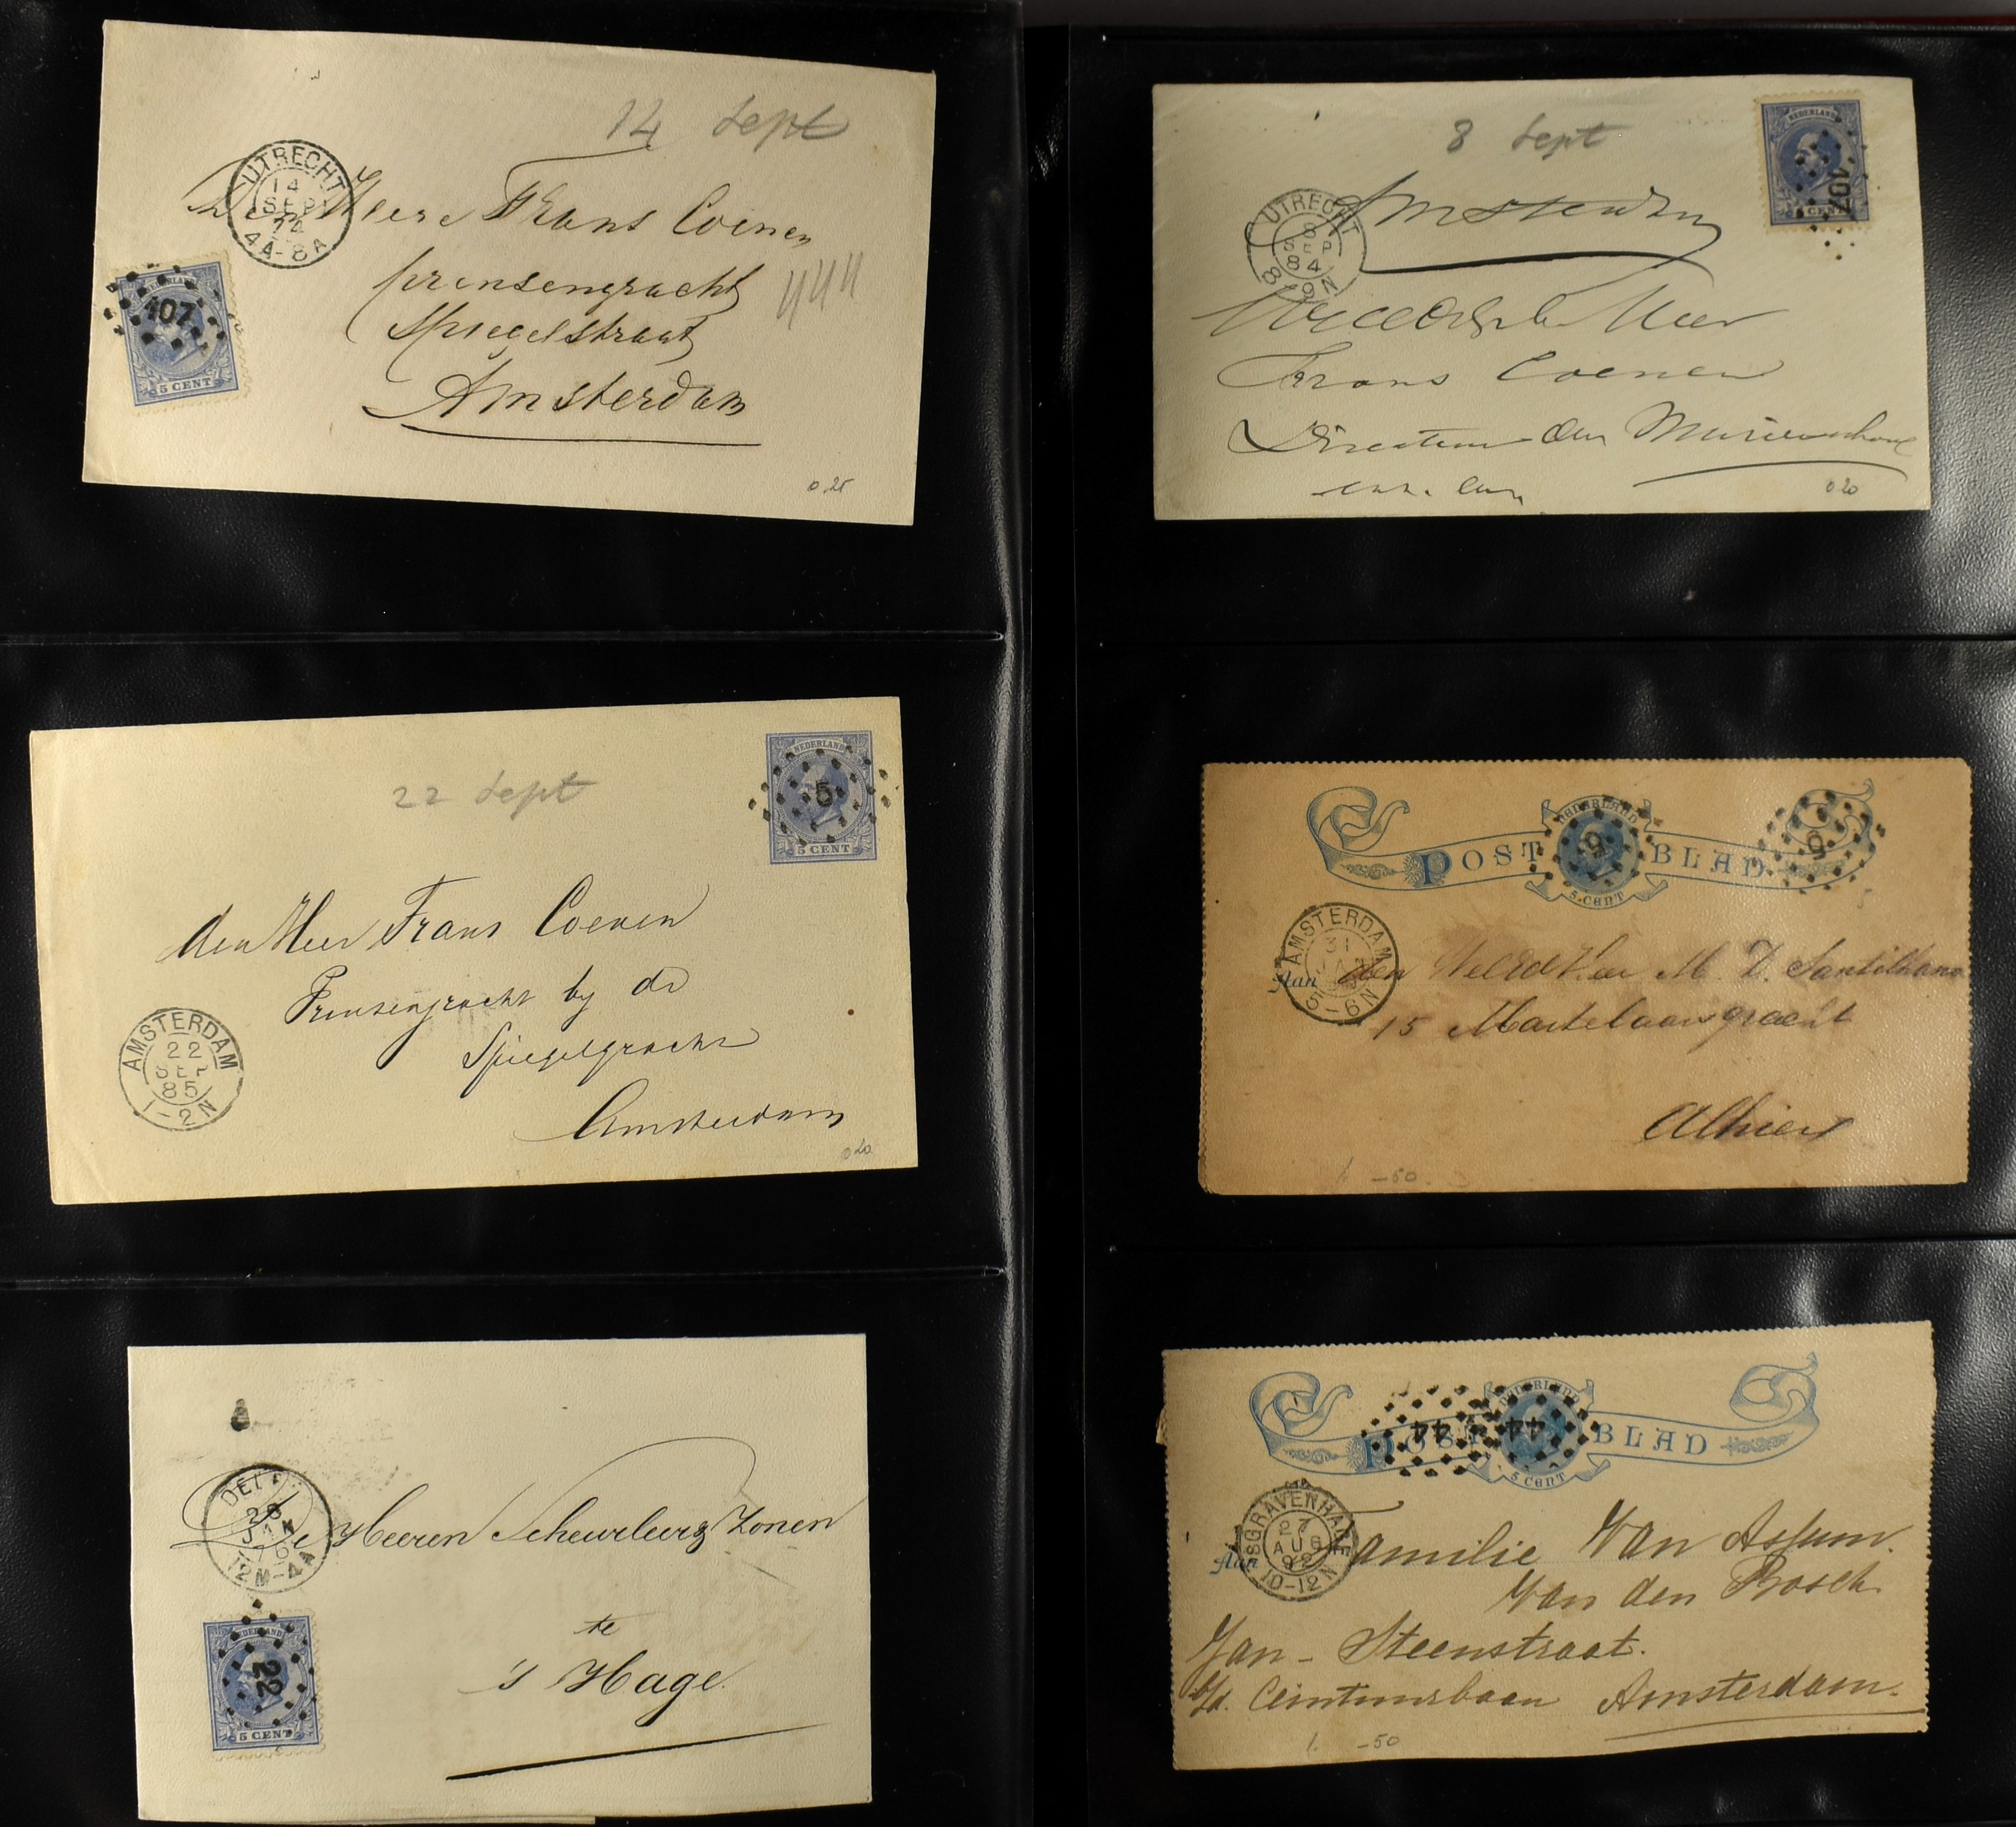 14 Sept
UTRECHT
14
SEP
74
4A-8A
Den Heere Frans Coenen
prinsengracht
Spiegelstraat
Amsterdam
NEDERLAND
107
5 CENT
0,25
8 Sept
NEDERLAND
107
5 CENT
UTRECHT
8
SEP
84
8-9N
Amsterdam
Frans Coenen
Directeur der
0 20
22 Sept
NEDERLAND
5
5 CENT
den Heer Frans Coenen
Prinsengracht by de
Spiegelgracht
Amsterdam
AMSTERDAM
22
SEP
85
1-2N
0 20
NEDERLAND
POST BLAD
5
5
5 CENT
AMSTERDAM
31
JAN
5-6N
Aan den WelEd Heer M. D. Santilhano
15 Martelaarsgracht
Alhier
1. -50
DELFT
28
JAN
76
12M-4A
De Heeren Scheurleer & Zonen
te
's Hage.
NEDERLAND
22
5 CENT
NEDERLAND
POST BLAD
44
44
5 CENT
'SGRAVENHAGE
27
AUG
92
10-12N
Aan Familie Van Assum.
Van den Bosch
Jan-Steenstraat.
b/d. Ceintuurbaan Amsterdam.
1. -50